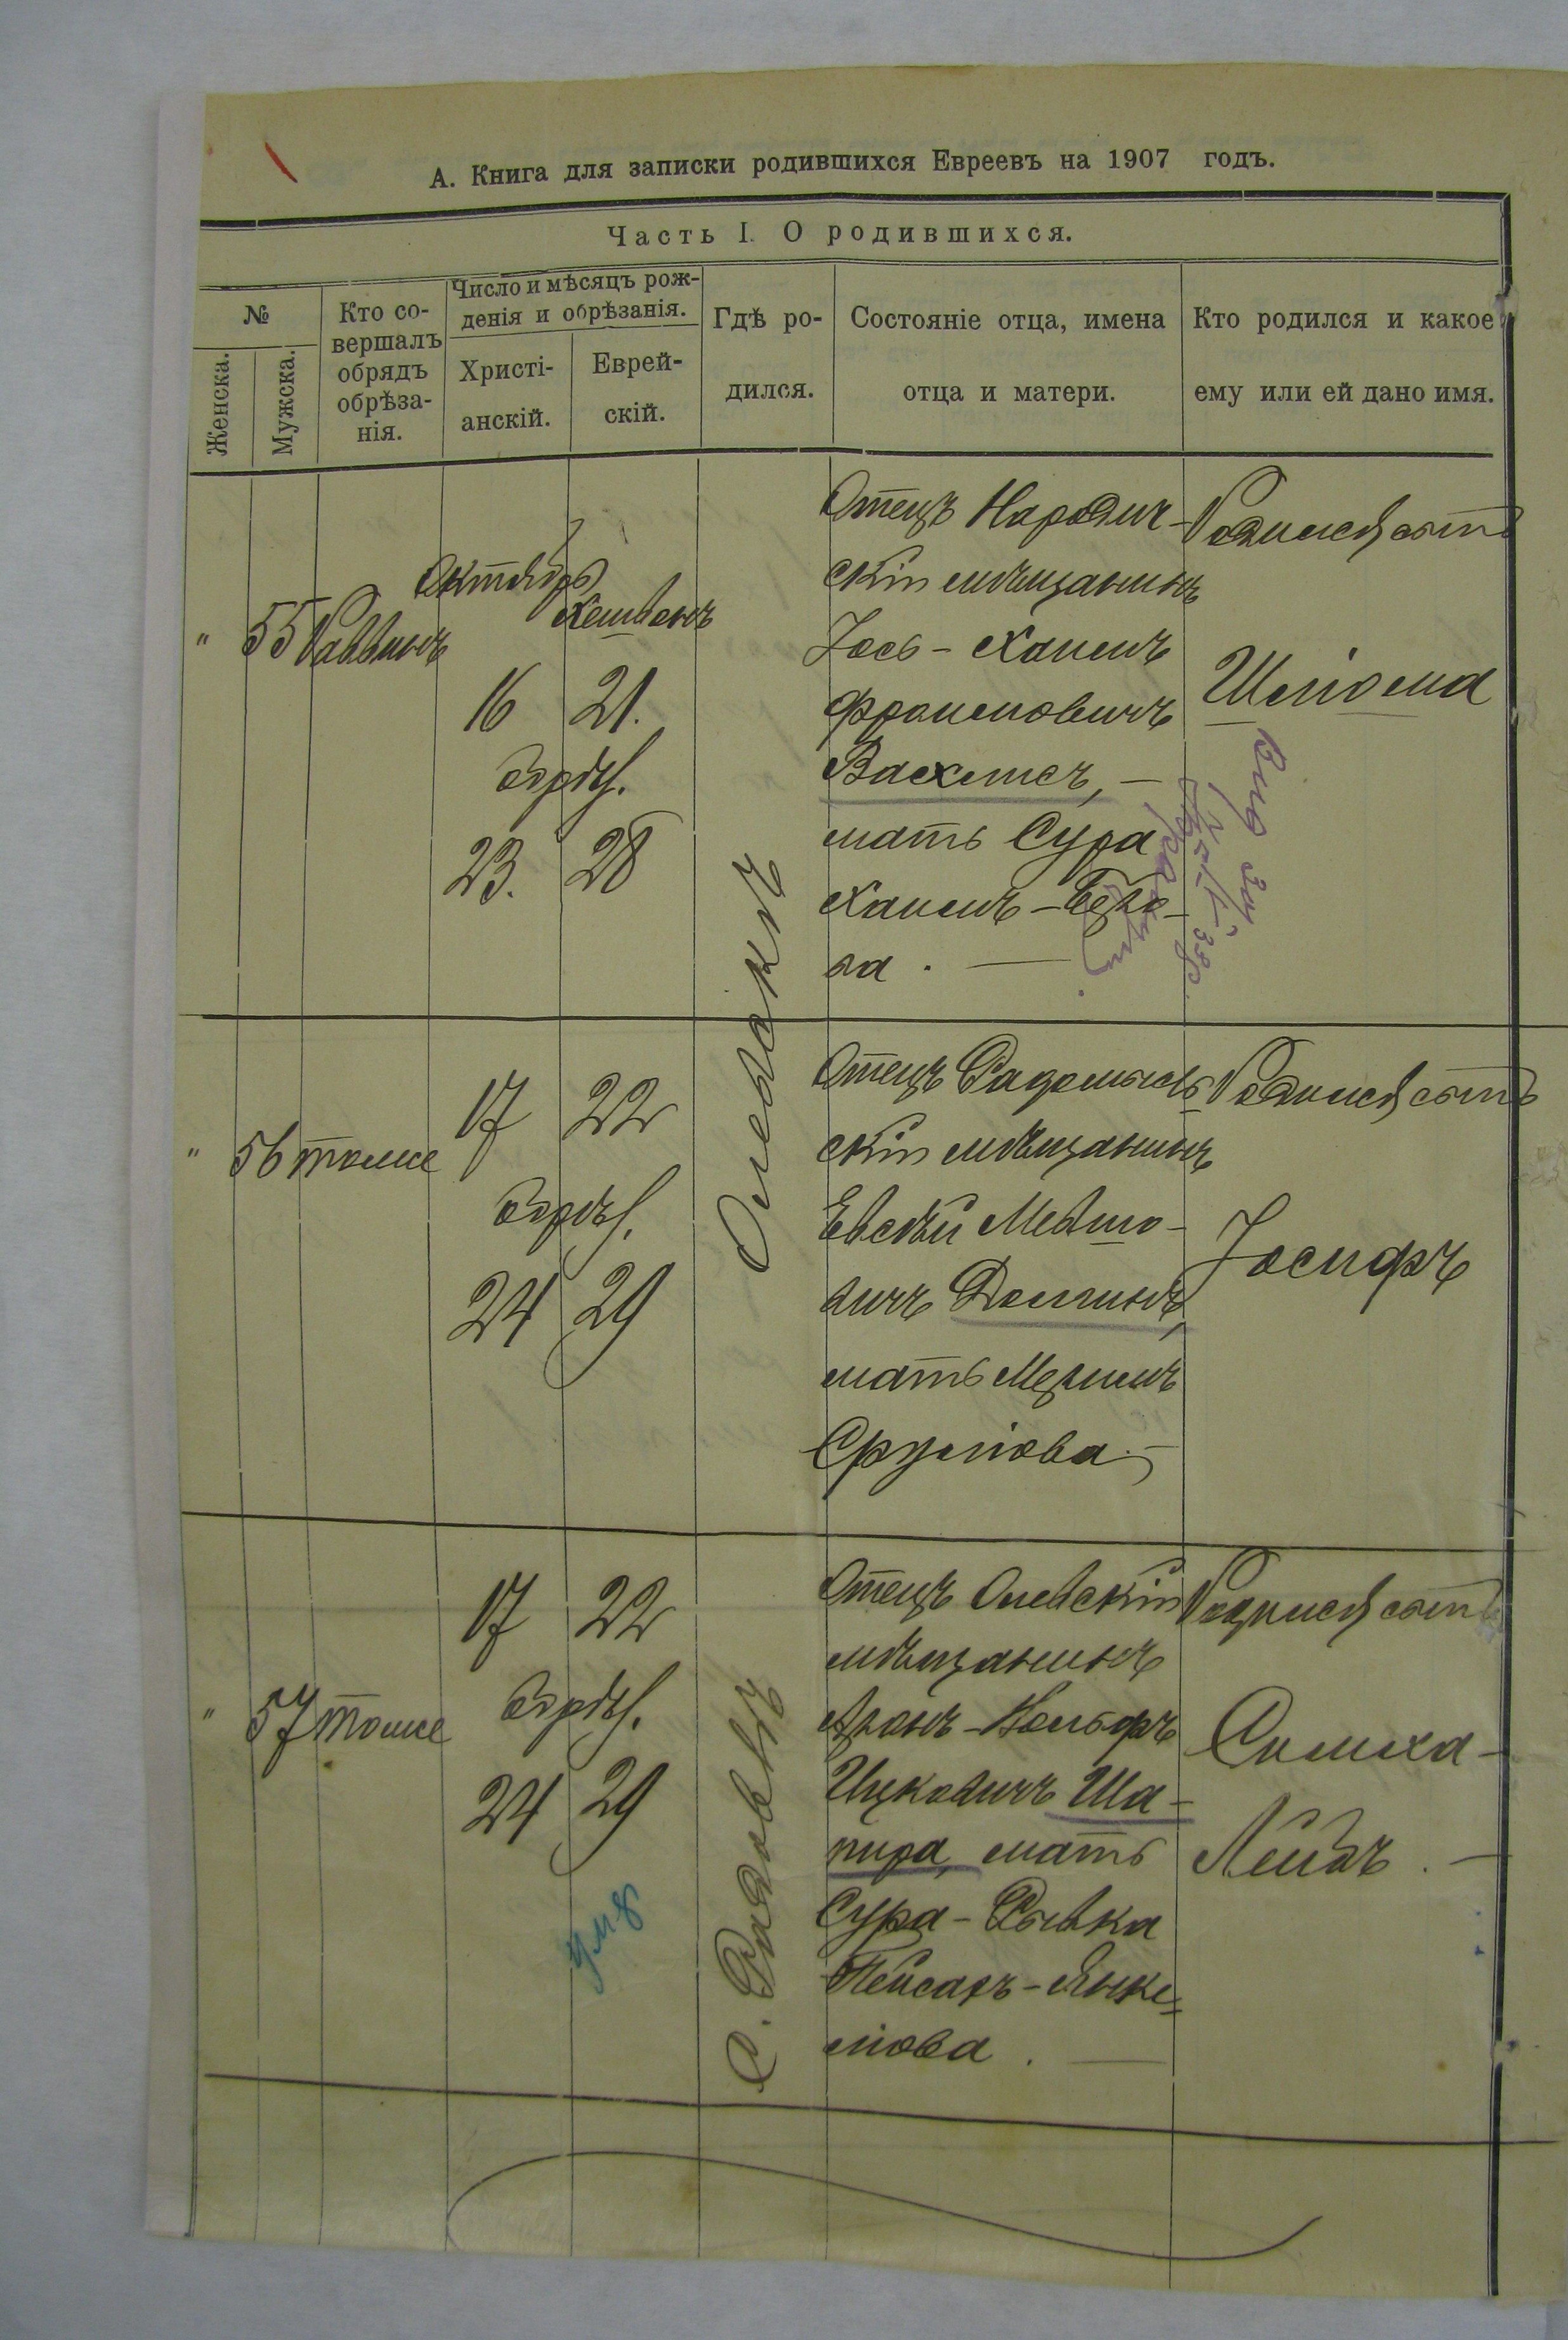 А. Книга для записки родившихся Евреевъ на 1907 годъ.
Часть I. О родившихся.
№
Женска.
Мужска.
Кто со-
вершалъ
обрядъ
обрѣза-
нія.
Число и мѣсяцъ рож-
денія и обрѣзанія.
Христі-
анскій.
Еврей-
скій.
Гдѣ ро-
дился.
Состояніе отца, имена
отца и матери.
Кто родился и какое
ему или ей дано имя.
" 55 Раввинъ
Октябрь
Хешванъ
16 21.
обрѣз.
23. 28
Олевскъ
Отецъ Народич-
скій мѣщанинъ
Іось-Хаимъ
Фроимовичъ
Вахлисъ, —
мать Сура
Хаимъ-Берко-
ва. —
Родился сынъ
Шлiома
" 56 тоже
17 22
обрѣз.
24 29
Отецъ Радомысль-
скій мѣщанинъ
Евсѣй Мевшо-
вичъ Долгинъ,
мать
Срулiова. —
Родился сынъ
Іосифъ
" 57 тоже
17 22
обрѣз.
24 29
умр
Отецъ Олевскій
мѣщанинъ
Аронъ-Вольфъ
Ицковичъ Ша-
пира, мать
Сура-Рывка
Пейсахъ-Янке-
лiова. —
Родился сынъ
Симха-
Лейбъ. —